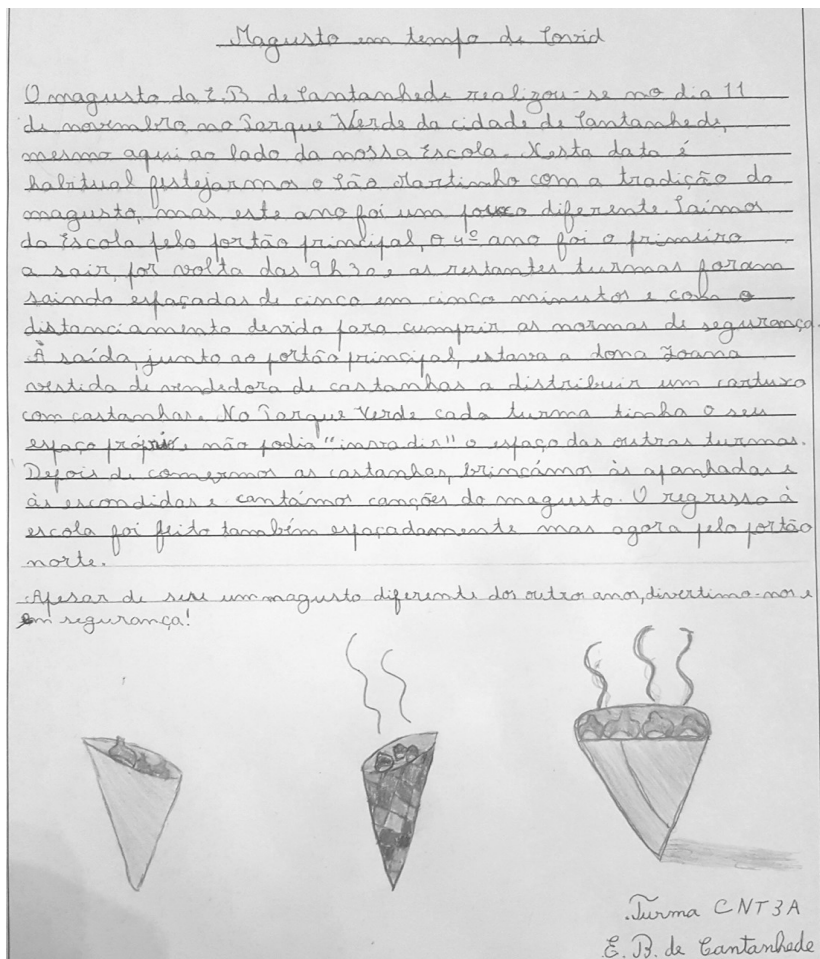 Magusto em tempo de Covid
O magusto da E.B de Cantanhede realizou-se no dia 11
de novembro no Parque Verde da cidade de Cantanhede,
mesmo aqui ao lado da nossa Escola. Nesta data é
habitual festejarmos o São Martinho com a tradição do
magusto, mas este ano foi um pouco diferente. Saímos
da Escola pelo portão principal, o 4º ano foi o primeiro
a sair, por volta das 9h30 e as restantes turmas foram
saindo espaçadas de cinco em cinco minutos e com o
distanciamento devido para cumprir as normas de segurança.
À saída, junto ao portão principal, estava a dona Joana
vestida de vendedora de castanhas a distribuir um cartuxo
com castanhas. No Parque Verde cada turma tinha o seu
espaço próprio e não podia "invadir" o espaço das outras turmas.
Depois de comermos as castanhas, brincámos às apanhadas e
às escondidas e cantámos canções do magusto. O regresso à
escola foi feito também espaçadamente mas agora pelo portão
norte.
Apesar de ser um magusto diferente dos outros anos, divertimo-nos e
em segurança!
Turma CNT3A
E.B. de Cantanhede